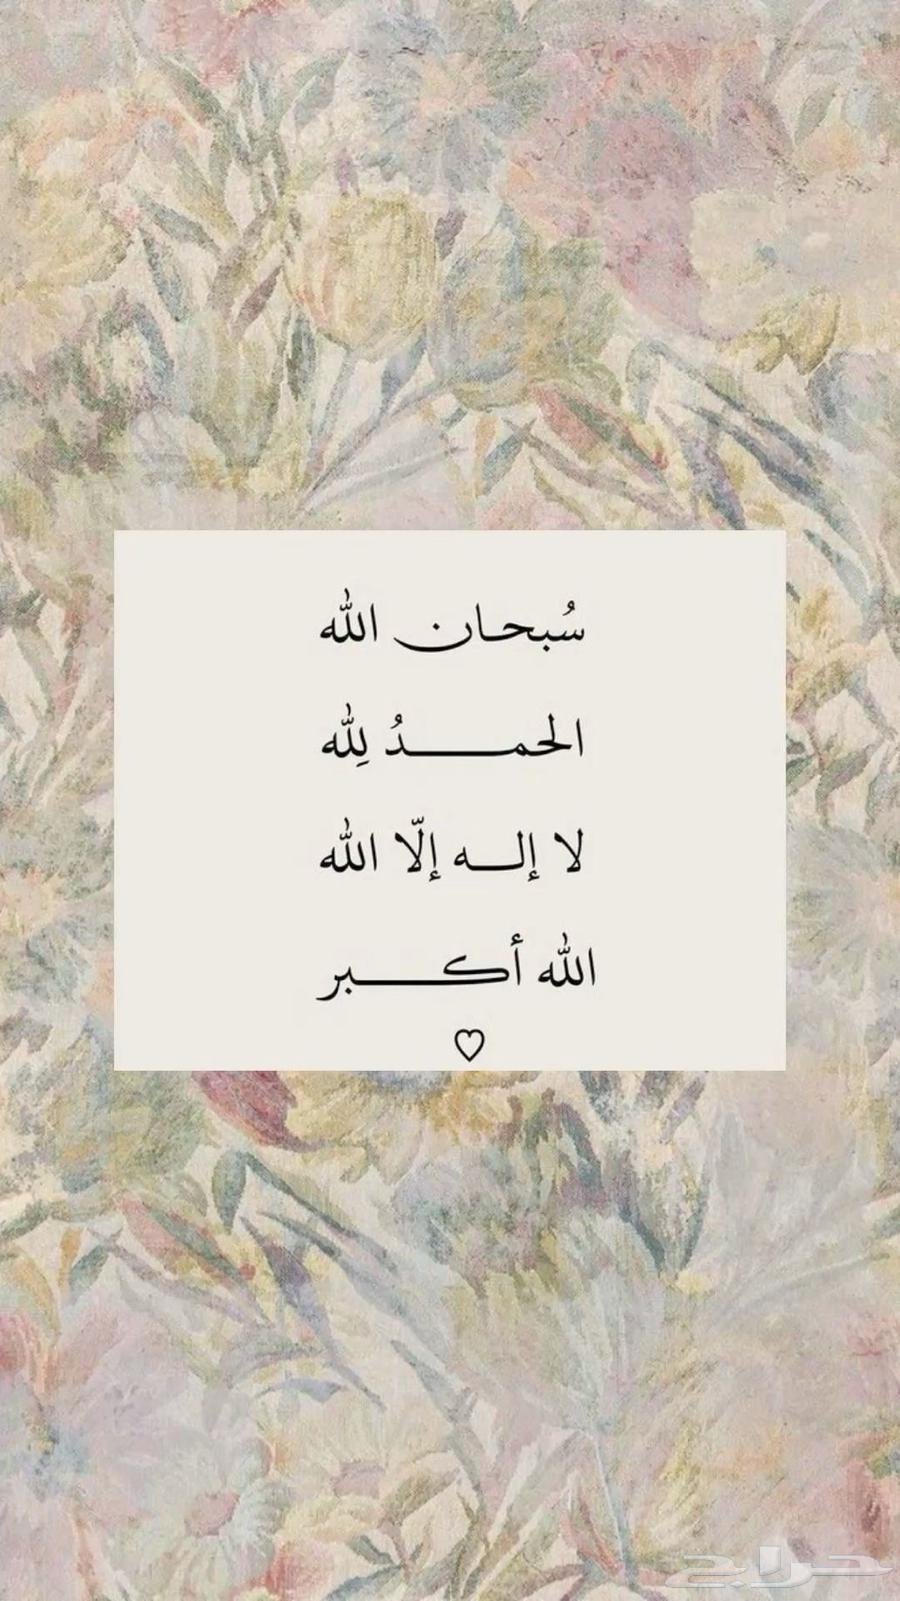 سُبحان الله
الحمدُ لِله
لا إله إلّا الله
الله أكبر
♡
حراج